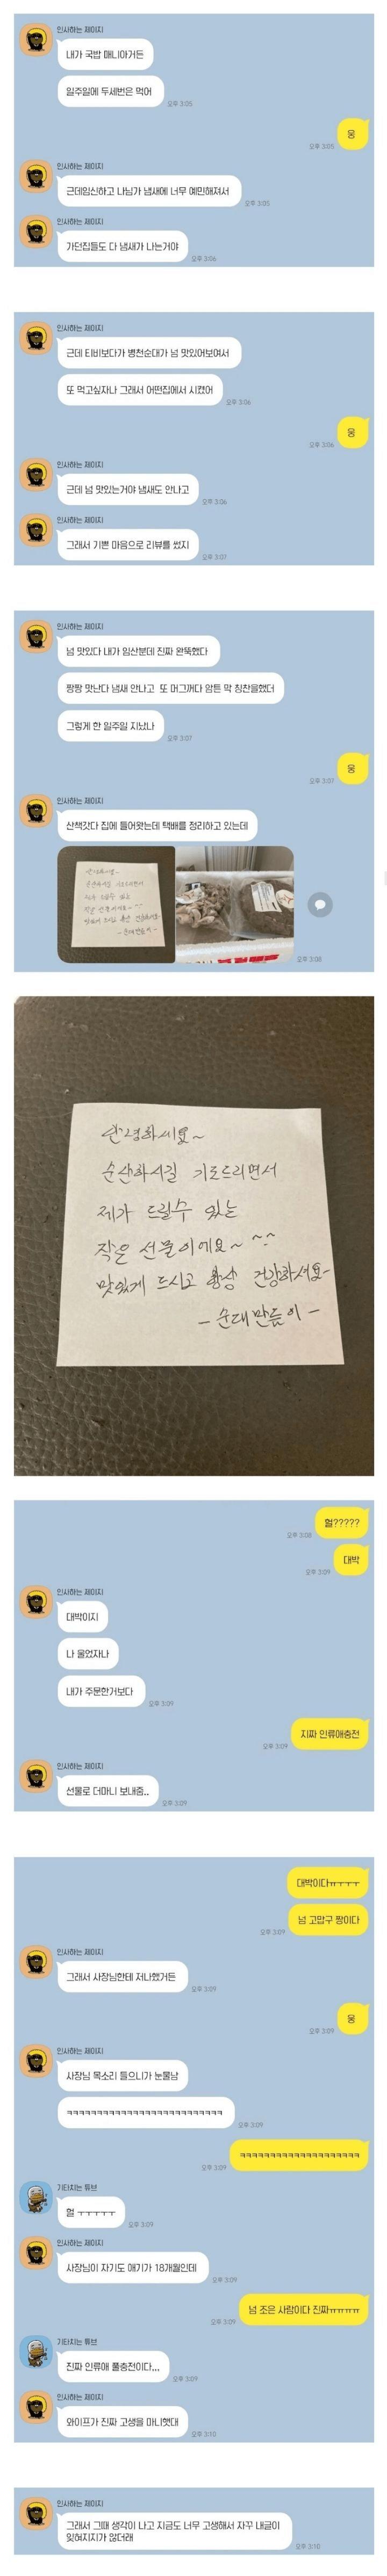 인사하는 제이지
내가 국밥 매니아거든
일주일에 두세번은 먹어
오후 3:05
웅
오후 3:05
인사하는 제이지
근데임신하고 나님가 냄새에 너무 예민해져서
오후 3:05
인사하는 제이지
가던집들도 다 냄새가 나는거야
오후 3:06
인사하는 제이지
근데 티비보다가 병천순대가 넘 맛있어보여서
또 먹고싶자나 그래서 어떤집에서 시켰어
오후 3:06
웅
오후 3:06
인사하는 제이지
근데 넘 맛있는거야 냄새도 안나고
오후 3:06
인사하는 제이지
그래서 기쁜 마음으로 리뷰를 썼지
오후 3:07
인사하는 제이지
넘 맛있다 내가 임산분데 진짜 완뚝했다
짱짱 맛난다 냄새 안나고 또 머그꺼다 암튼 막 칭찬을했더
그렇게 한 일주일 지났나
오후 3:07
웅
오후 3:07
인사하는 제이지
산책갓다 집에 들어왓는데 택배를 정리하고 있는데
오후 3:08
안녕하세요~
순산하시길 기도드리면서
제가 드릴수 있는
작은 선물이에요~ ^^
맛있게 드시고 항상 건강하셔요-
- 순대만들이 -
헐?????
오후 3:08
대박
오후 3:09
인사하는 제이지
대박이지
나 울었자나
내가 주문한거보다
오후 3:09
지짜 인류애충전
오후 3:09
인사하는 제이지
선물로 더마니 보내줌..
오후 3:09
대박이다ㅠㅜㅜㅜ
넘 고맙구 짱이다
오후 3:09
인사하는 제이지
그래서 사장님한테 저나했거든
오후 3:09
웅
오후 3:09
인사하는 제이지
사장님 목소리 들으니가 눈물남
ㅋㅋㅋㅋㅋㅋㅋㅋㅋㅋㅋㅋㅋㅋㅋㅋㅋㅋㅋㅋㅋㅋㅋㅋㅋㅋ
오후 3:09
ㅋㅋㅋㅋㅋㅋㅋㅋㅋㅋㅋㅋㅋㅋㅋㅋㅋㅋㅋㅋ
오후 3:09
기타치는 튜브
헐 ㅜㅜㅜㅜㅜ
오후 3:09
인사하는 제이지
사장님이 자기도 애기가 18개월인데
오후 3:09
넘 조은 사람이다 진짜ㅠㅠㅠㅠ
오후 3:09
기타치는 튜브
진짜 인류애 풀충전이다...
오후 3:09
인사하는 제이지
와이프가 진짜 고생을 마니했대
오후 3:10
인사하는 제이지
그래서 그때 생각이 나고 지금도 너무 고생해서 자꾸 내글이
잊혀지지가 않더래
오후 3:10